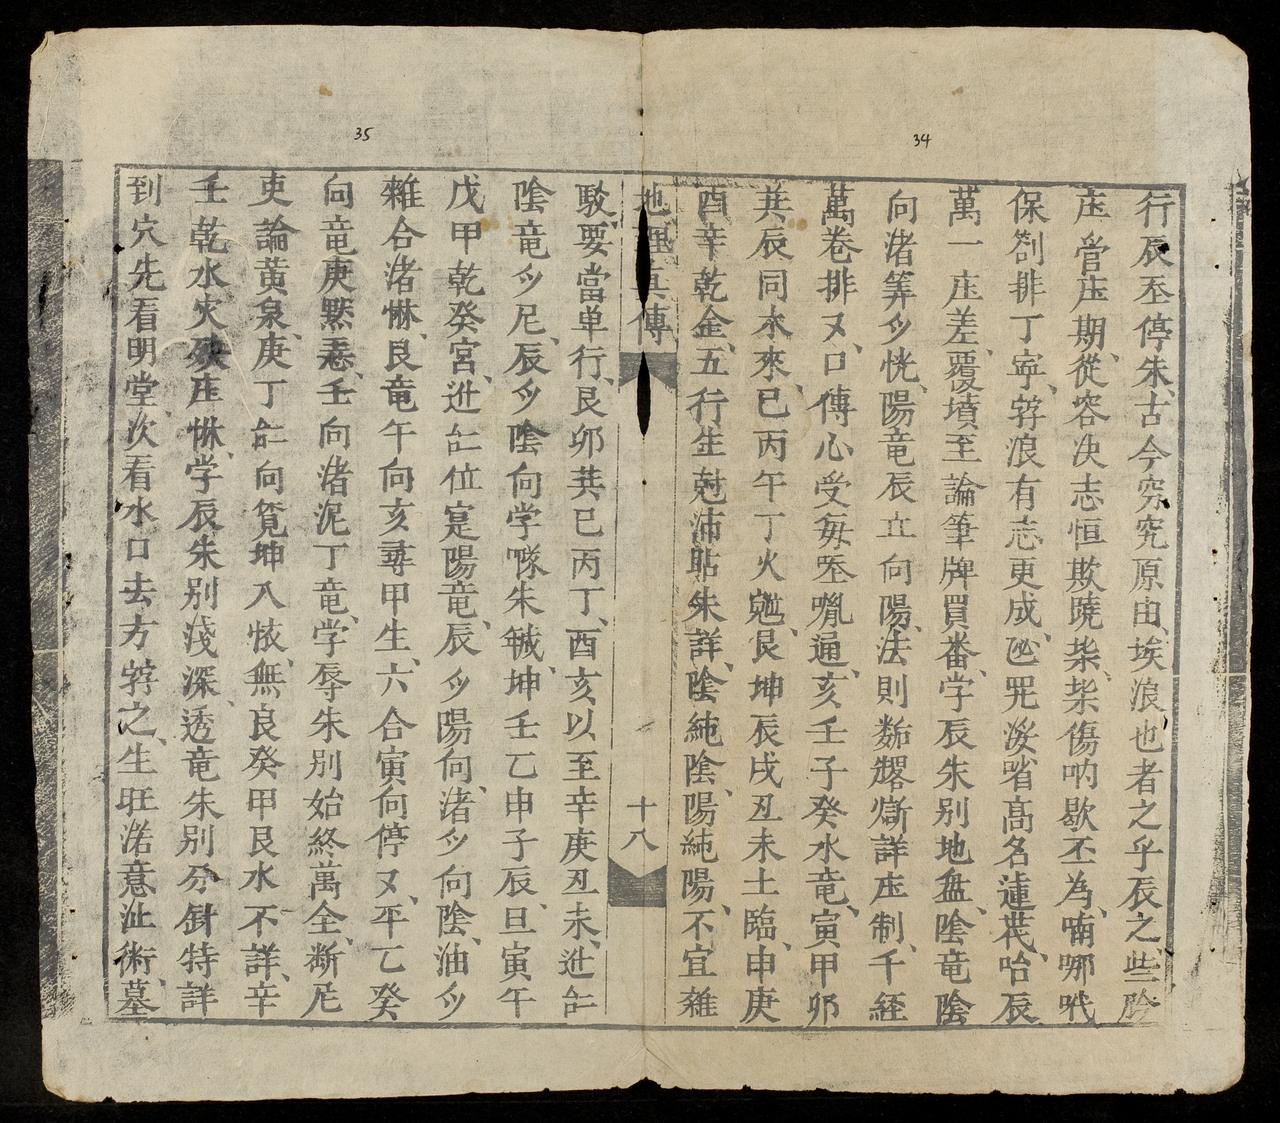 34
行辰丕停朱、古今穷究原由、埃浪也者之乎辰之、些
庄管庄期、從容决志恒欺曉桀、桀傷吶歇丕為、喃哪
保劄排丁寧、辤浪有志更成、咫哭涹、啙高名蓮花、哈辰
萬一庄差、覆墳至論筆牌買番、学辰朱別地盘、陰竜陰
向渚筭𱺵恍、陽竜辰立向陽、法則𥒥糀㷍詳庄制、千経
萬卷排又、口傳心受每𠀧𠵘通、亥壬子癸水竜、寅甲卯
共辰同木來、巳丙午丁火𨖅、艮坤辰戌丑未土臨、申庚
酉辛乾金、五行生尅沛貼朱詳、陰純陰、陽純陽、不宜雜
地理真傳
十八
35
駁、要當单行、艮卯共巳丙丁、酉亥以至辛庚丑未、迍𠄩
陰竜𱺵尼、辰𱺵陰向学㗂朱𨧟、坤壬乙申子辰、旦寅午
戊甲乾癸宮、迍𠄩位寔陽竜、辰𱺵陽向、渚𱺵向陰、油𱺵
雜合渚惏、艮竜午向亥尋甲生、六合寅向停又、平乙癸
向竜庚㸃丟、壬向渚泥丁竜、学辱朱別始終萬全、断尼
吏論黃泉、庚丁𠄩向筧坤入怀、無良癸甲艮水不詳、辛
壬乾水災殃庄惏、学辰朱別淺深、透竜朱別分針特詳
到穴先看明堂、次看水口去方辤之、生旺渃意沚術、墓